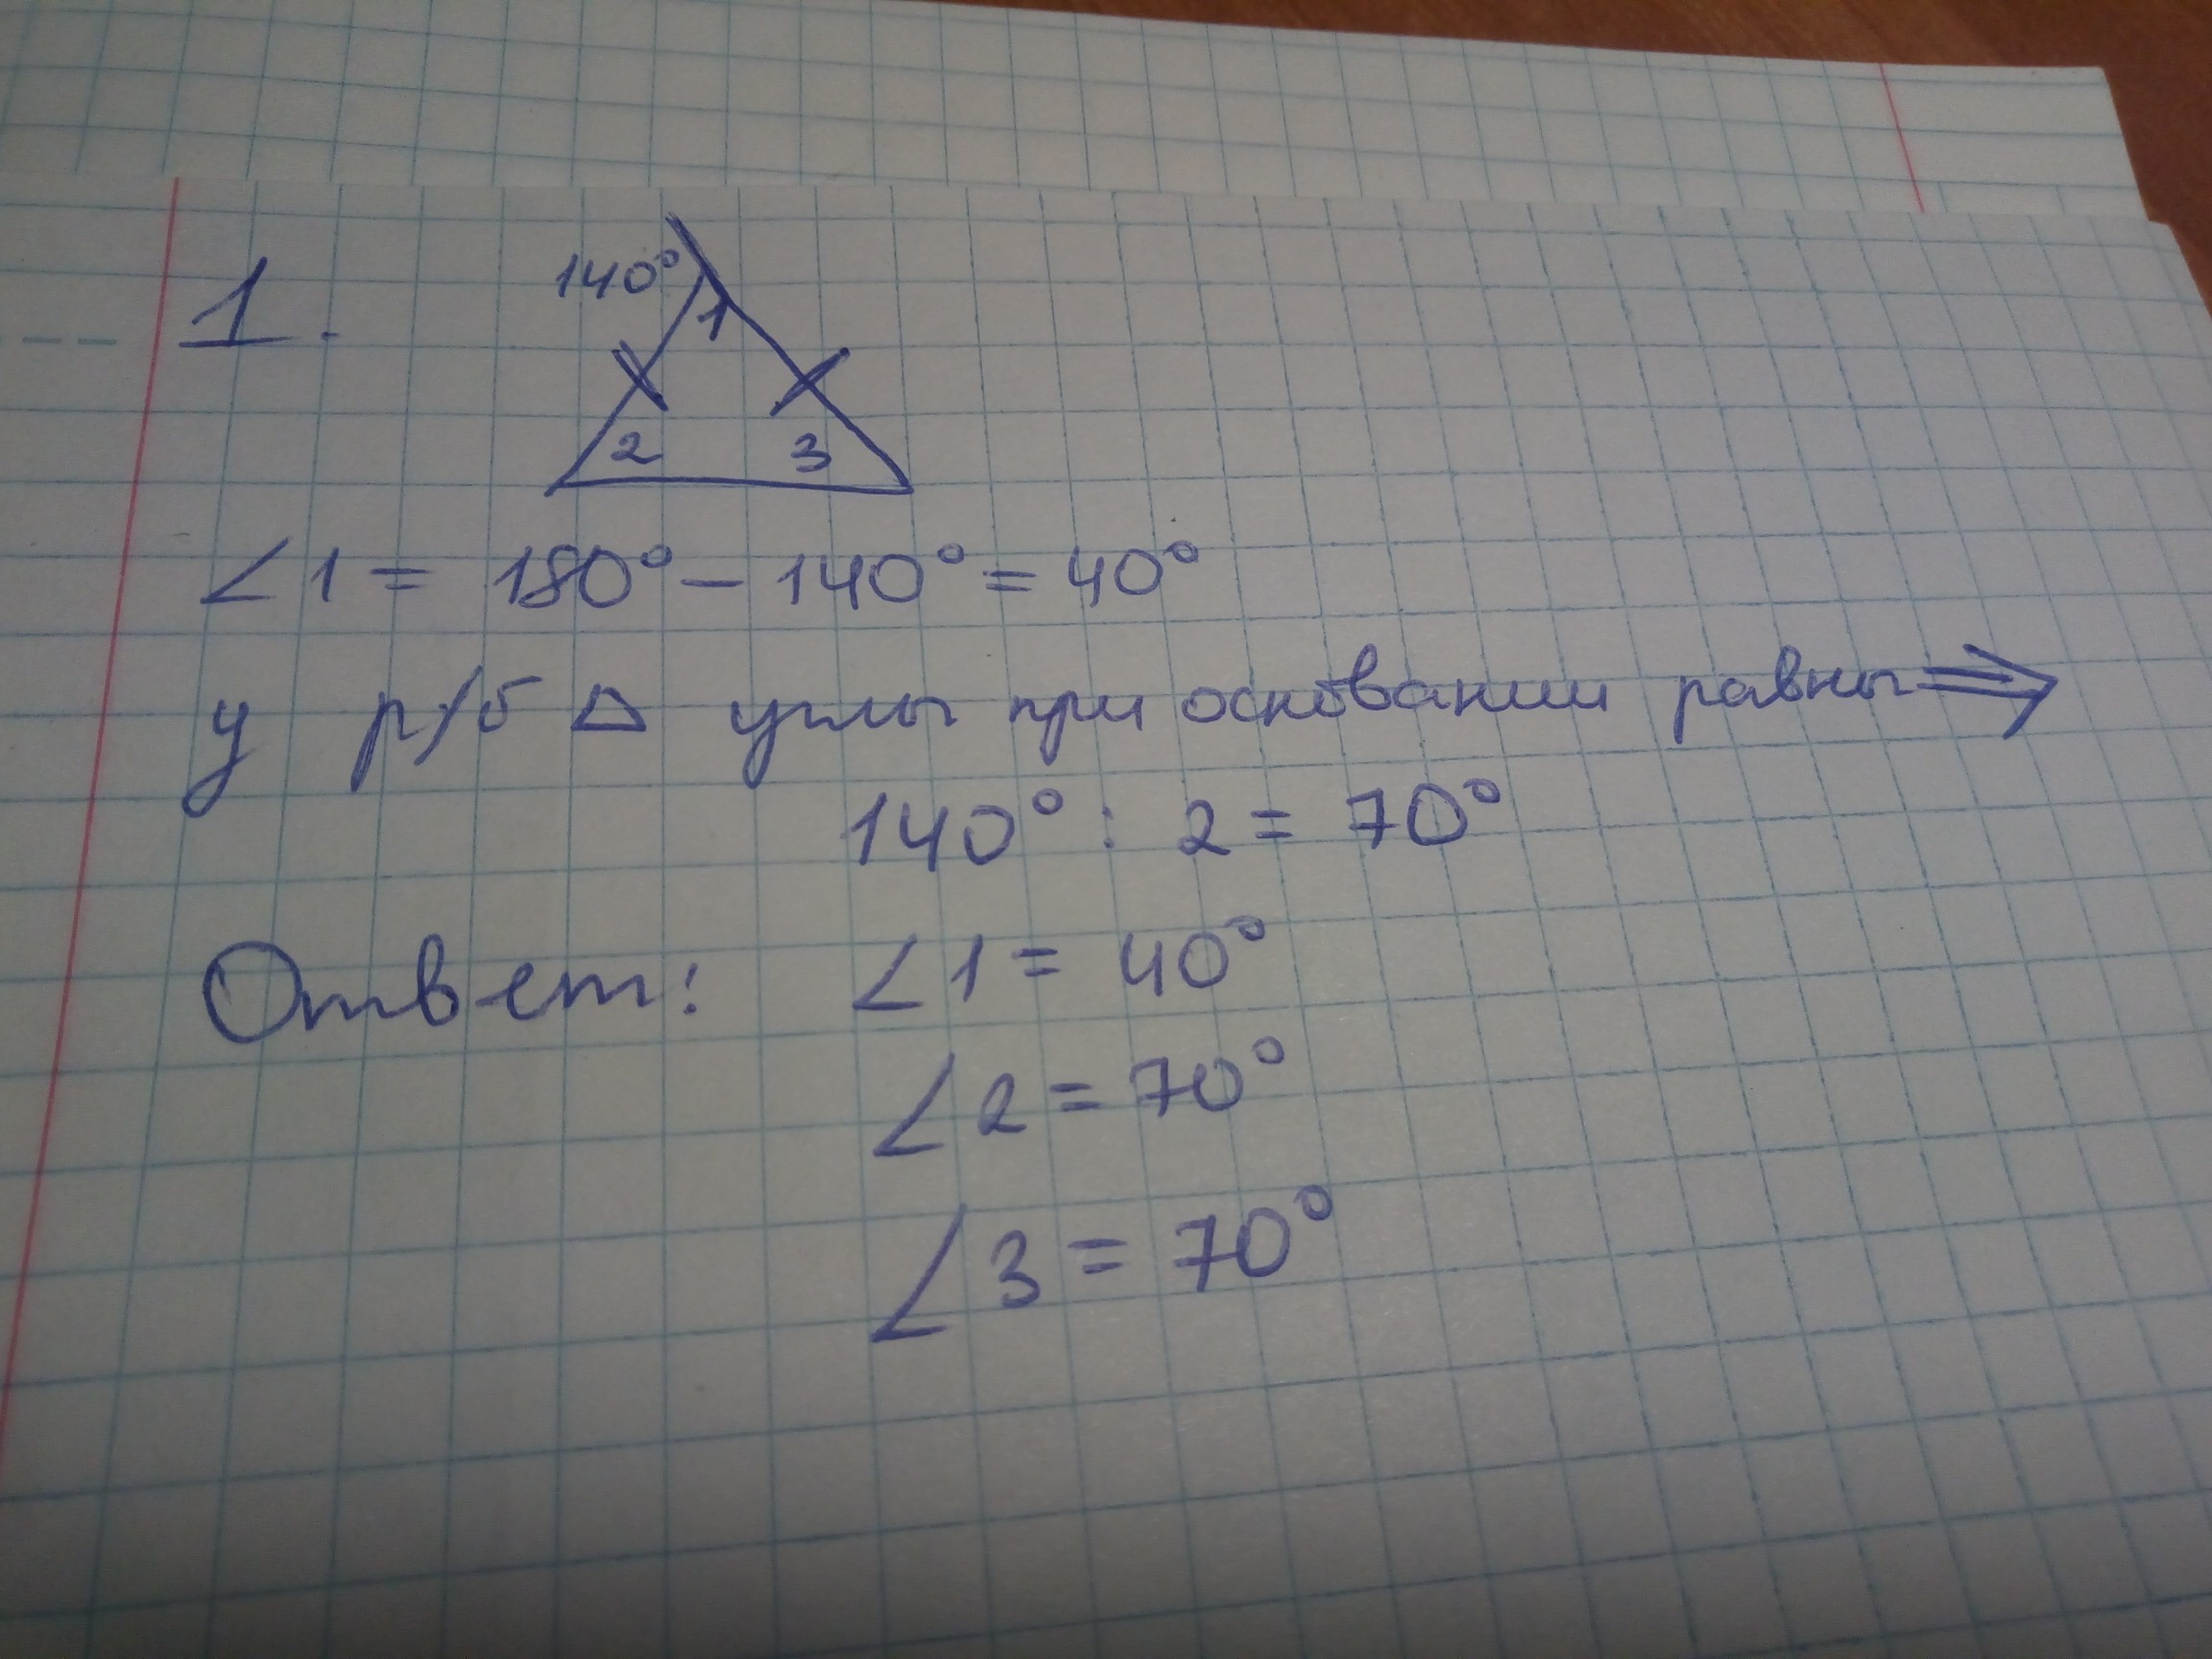 1.
140°
1
2 3
∠1 = 180° - 140° = 40°
у р/б △ углы при основании равны ⇒
140° : 2 = 70°
Ответ: ∠1 = 40°
∠2 = 70°
∠3 = 70°